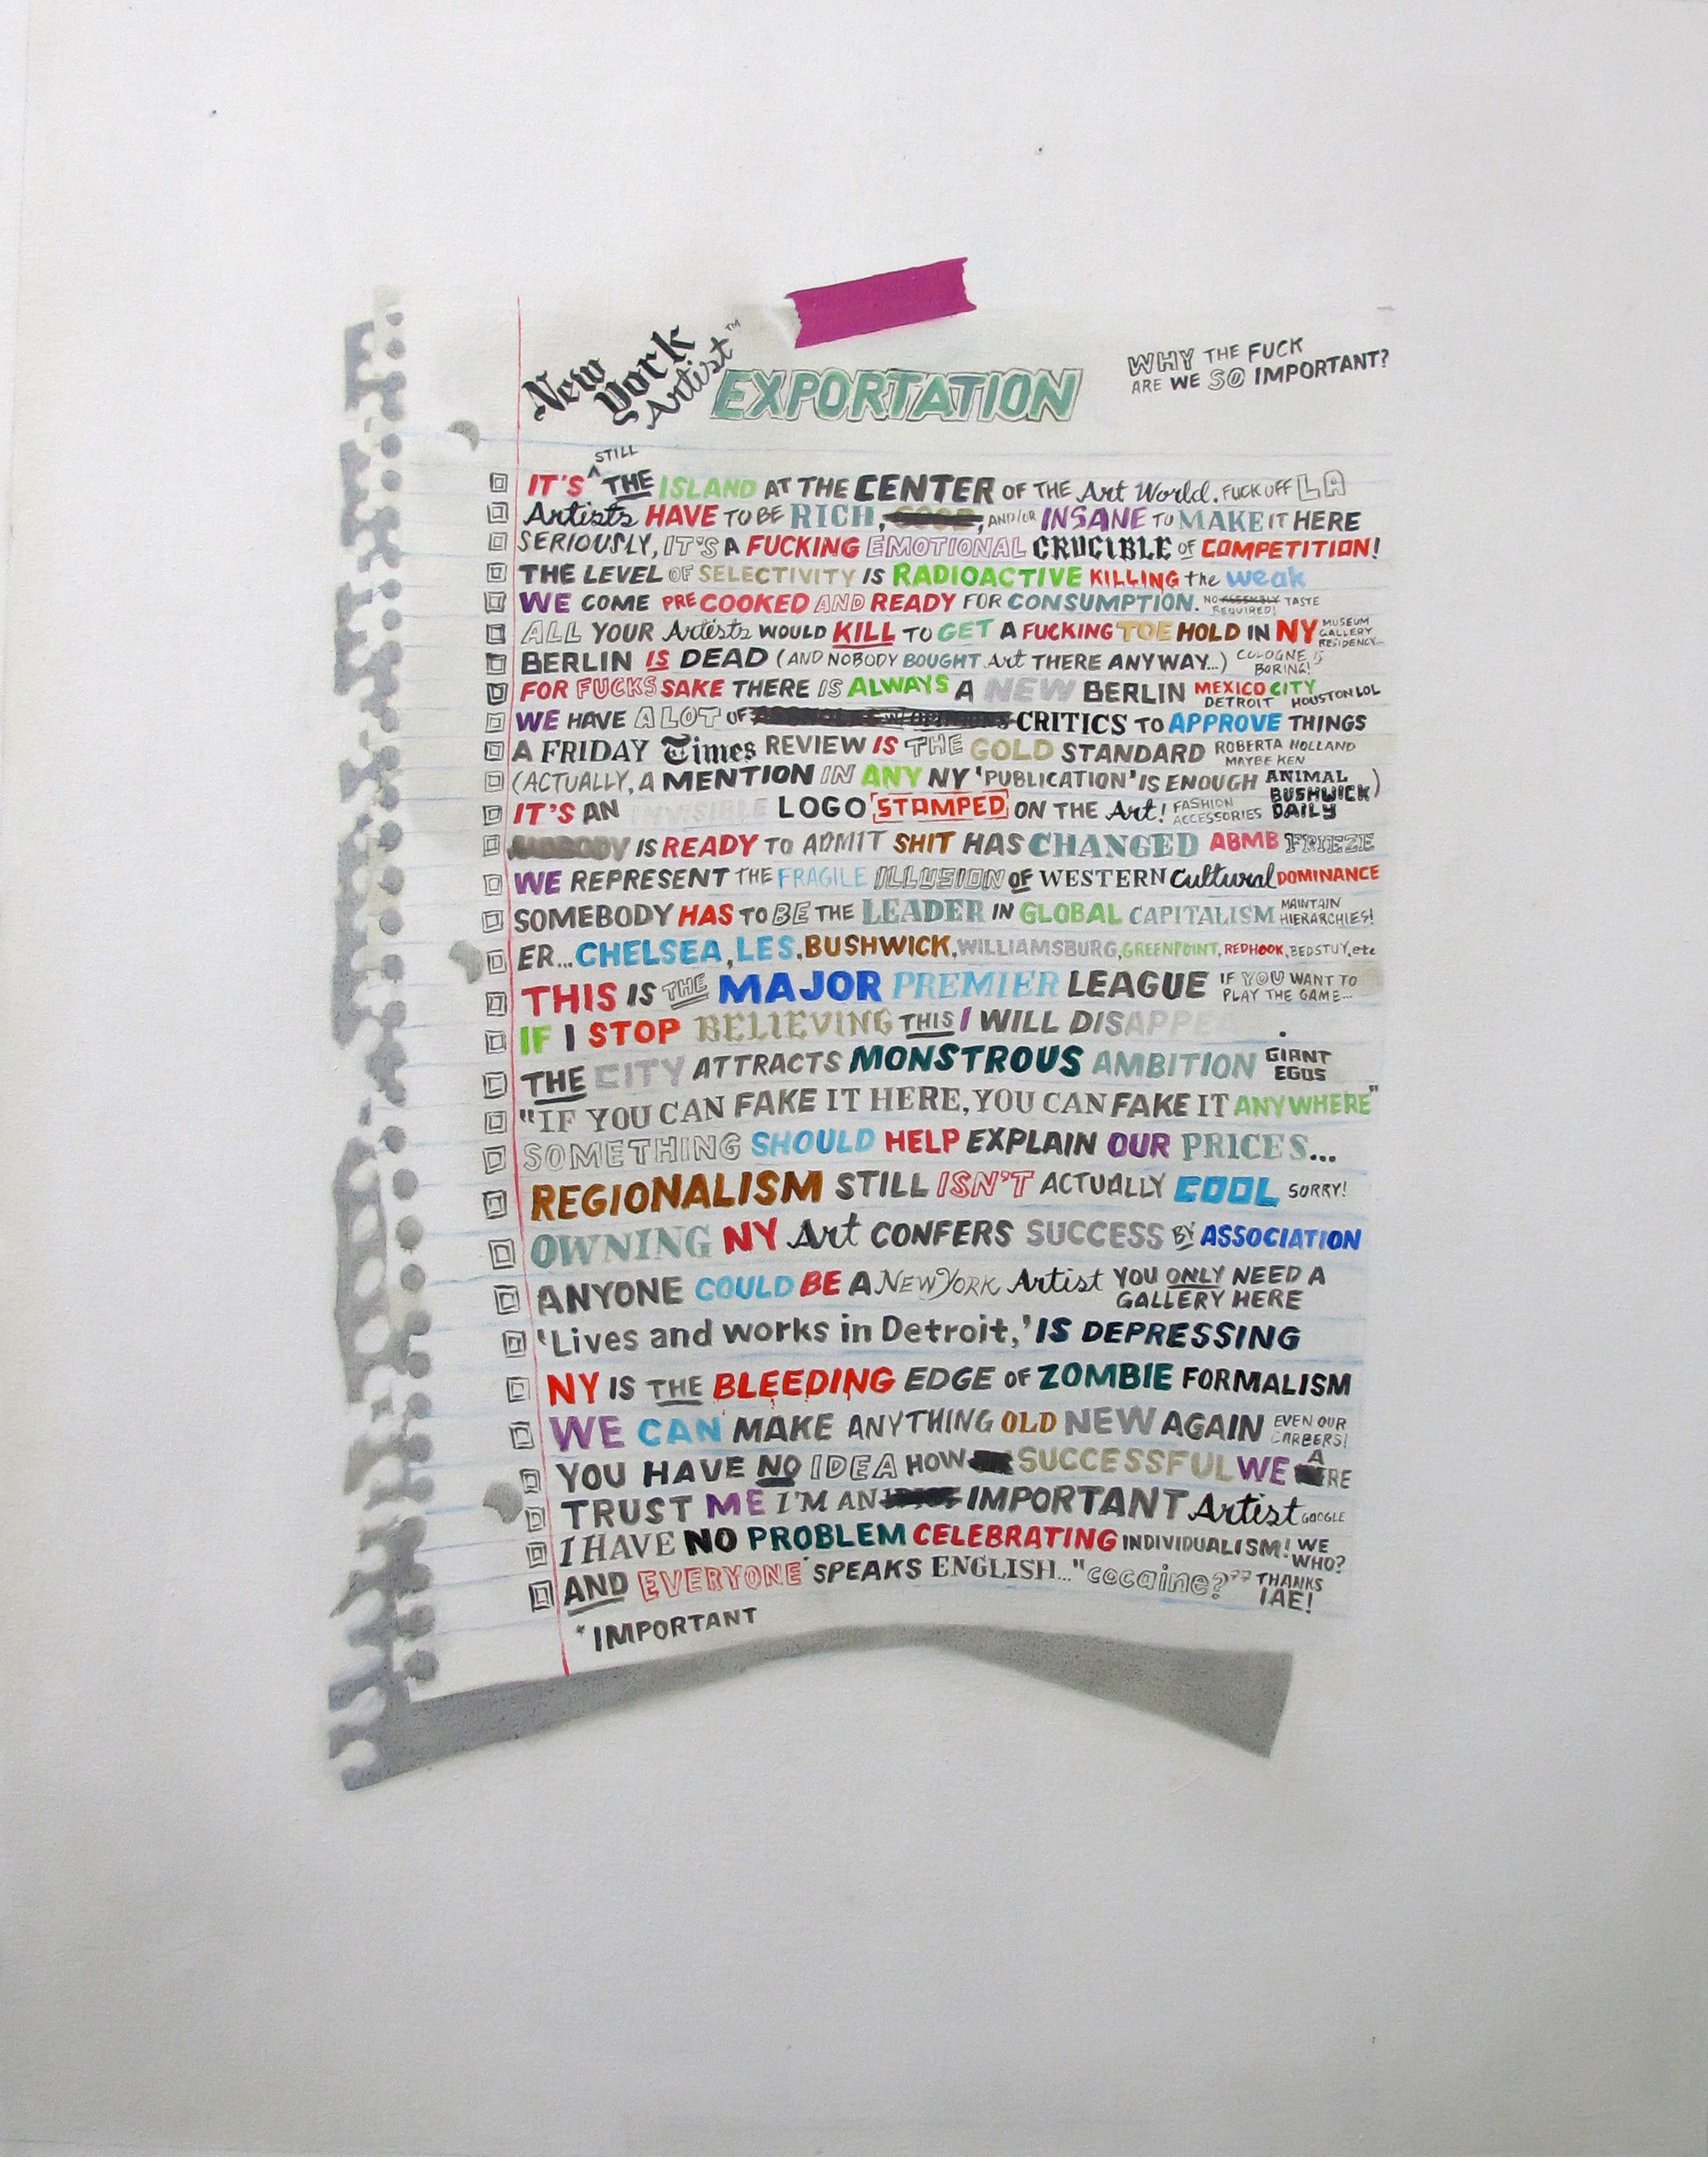 New York Artist™ EXPORTATION
WHY THE FUCK
ARE WE SO IMPORTANT?
STILL
IT'S ^ THE ISLAND AT THE CENTER OF THE Art World. FUCK OFF LA
Artists HAVE TO BE RICH, GOOD, AND/OR INSANE TO MAKE IT HERE
SERIOUSLY, IT'S A FUCKING EMOTIONAL CRUCIBLE OF COMPETITION!
THE LEVEL OF SELECTIVITY IS RADIOACTIVE KILLING the weak
WE COME PRE COOKED AND READY FOR CONSUMPTION. NO ASSEMBLY TASTE
REQUIRED!
ALL YOUR Artists WOULD KILL TO GET A FUCKING TOE HOLD IN NY MUSEUM
GALLERY
RESIDENCY...
BERLIN IS DEAD (AND NOBODY BOUGHT Art THERE ANYWAY...) COLOGNE IS
BORING!
FOR FUCKS SAKE THERE IS ALWAYS A NEW BERLIN MEXICO CITY
DETROIT HOUSTON LOL
WE HAVE A LOT OF CRITICS TO APPROVE THINGS
A FRIDAY Times REVIEW IS THE GOLD STANDARD ROBERTA HOLLAND
MAYBE KEN
(ACTUALLY, A MENTION IN ANY NY 'PUBLICATION' IS ENOUGH ANIMAL )
BUSHWICK
DAILY
IT'S AN INVISIBLE LOGO STAMPED ON THE Art! FASHION
ACCESSORIES
NOBODY IS READY TO ADMIT SHIT HAS CHANGED ABMB FRIEZE
WE REPRESENT THE FRAGILE ILLUSION OF WESTERN Cultural DOMINANCE
SOMEBODY HAS TO BE THE LEADER IN GLOBAL CAPITALISM MAINTAIN
HIERARCHIES!
ER...CHELSEA, LES, BUSHWICK, WILLIAMSBURG, GREENPOINT, REDHOOK, BEDSTUY, etc
THIS IS THE MAJOR PREMIER LEAGUE IF YOU WANT TO
PLAY THE GAME...
IF I STOP BELIEVING THIS I WILL DISAPPEA .
THE CITY ATTRACTS MONSTROUS AMBITION GIANT
EGOS
"IF YOU CAN FAKE IT HERE, YOU CAN FAKE IT ANYWHERE"
SOMETHING SHOULD HELP EXPLAIN OUR PRICES...
REGIONALISM STILL ISN'T ACTUALLY COOL SORRY!
OWNING NY Art CONFERS SUCCESS BY ASSOCIATION
ANYONE COULD BE A NEW YORK Artist YOU ONLY NEED A
GALLERY HERE
'Lives and works in Detroit,' IS DEPRESSING
NY IS THE BLEEDING EDGE OF ZOMBIE FORMALISM
WE CAN MAKE ANYTHING OLD NEW AGAIN EVEN OUR
CARBERS!
YOU HAVE NO IDEA HOW SUCCESSFUL WE ARE
TRUST ME I'M AN IMPORTANT Artist GOOGLE
I HAVE NO PROBLEM CELEBRATING INDIVIDUALISM! WE
WHO?
AND EVERYONE* SPEAKS ENGLISH..."cocaine?" THANKS
IAE!
*IMPORTANT